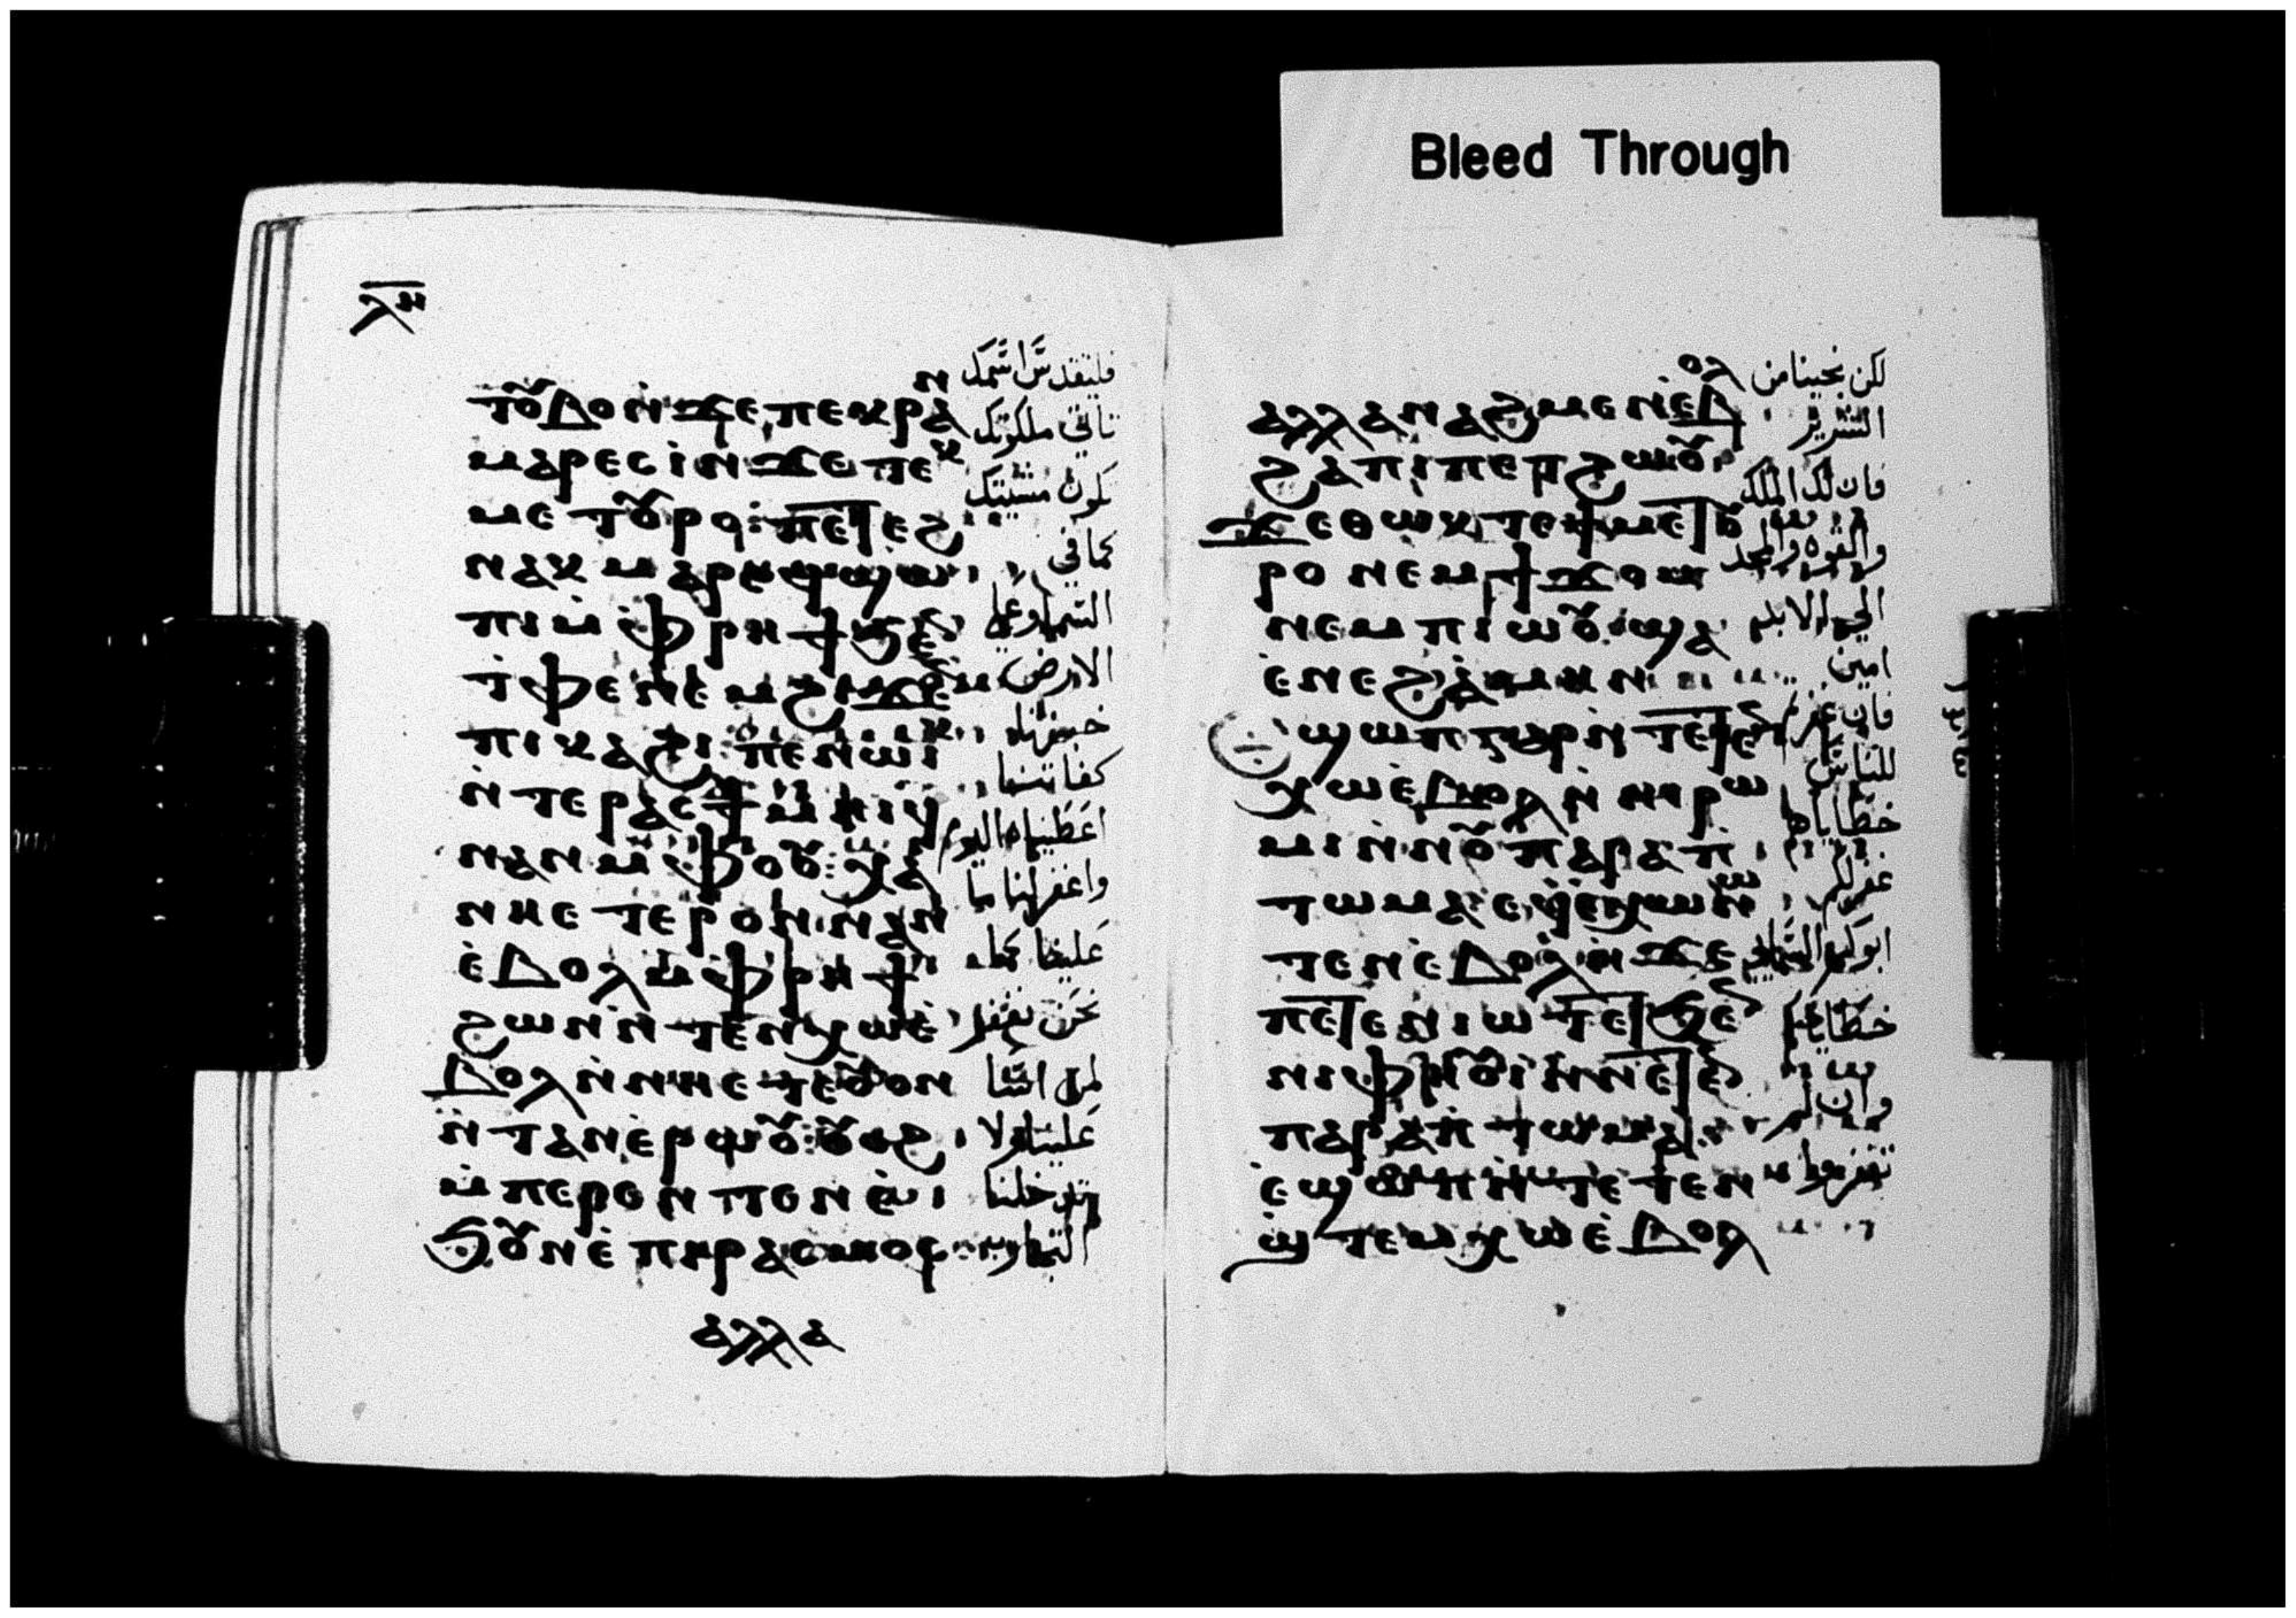 Bleed Through
ⲗⲏ
ⲧⲟⲩⲃⲟⲛϫⲉⲡⲉⲕⲣⲁⲛ
ⲙⲁⲣⲉⲥⲓⲛϫⲉⲧⲉⲕ
ⲙⲉⲧⲟⲩⲣⲟ
ⲛⲁⲕⲙⲁⲣⲉϥϣⲱ
ⲡⲓⲙ̀ⲫⲣⲏϯϧⲉⲛ
ⲧ̀ⲫⲉⲛⲉⲙϩⲓϫⲉⲛ
ⲡⲓⲕⲁϩⲓ ⲡⲉⲛⲱⲓⲕ
ⲛ̀ⲧⲉⲣⲁⲥϯⲙⲏⲓϥ
ⲛⲁⲛⲙ̀ⲫⲟⲟⲩ ⲭⲁ
ⲛⲏⲉⲧⲉⲣⲟⲛⲛⲁⲛ
ⲉ̀ⲃⲟⲗⲙ̀ⲫⲣⲏϯ
ϩⲱⲛⲛ̀ⲧⲉⲛⲭⲱⲉ̀
ⲃⲟⲗⲛ̀ⲛⲏⲉⲧⲉⲟⲩⲟⲛ
ⲛ̀ⲧⲁⲛⲉ̀ⲣⲱⲟⲩ ⲟⲩⲟϩ
ⲙ̀ⲡⲉⲣⲉⲛⲧⲉⲛⲉ̀
ϧⲟⲩⲛⲉ̀ⲡⲓⲣⲁⲥⲙⲟⲥ
ⲁⲗⲗⲁ
فليتقدس اسمك
تاتي ملكوتك
تكون مشيتك
كما في
السما وعلي
الارض
خبزنا
اعطيناه اليوم
واغفر لنا ما
علينا كما
نحن نغفر
لمن لنا
علينا ولا
تدخلنا
التجارب
ⲁⲗⲗⲁⲛⲁϩⲙⲉⲛⲉ̀ⲃⲟⲗ
ϩⲁⲡⲓⲡⲉⲧϩⲱⲟⲩ
ϫⲉⲑⲱⲕⲧⲉϯⲙⲉⲧⲟⲩ
ⲣⲟ ⲛⲉⲙϯϫⲟⲙ
ⲛⲉⲙⲡⲓⲱⲟⲩ ϣⲁ
ⲉ̀ⲛⲉϩ ⲁ̀ⲙⲏⲛ
ϣⲱⲡ
ⲭⲱⲉ̀ⲃⲟⲗⲛ̀ⲛⲓⲣⲱ
ⲙⲓⲛ̀ⲛⲟⲩⲡⲁⲣⲁⲡ
ⲧⲱⲙⲁ
ⲧⲉⲛⲉ̀ⲃⲟⲗⲛ̀ϫⲉ
ⲡⲉⲧⲉⲛⲓⲱⲧ
ⲛⲓⲫⲏⲟⲩⲓⲛ̀ⲛⲉⲧⲉⲛ
ⲡⲁⲣⲁⲡⲧⲱⲙⲁ
ⲉ̀ϣⲱⲡ
ϣ̀ⲧⲉⲙⲭⲱⲉ̀ⲃⲟⲗ
لكن نجينا من
الشرير
فان لك الملك
والقوه والمجد
الي الابد
امين
فان غفرتم
للناس
خطاياها
غفر لكم
ابوكم السماي
خطاياكم
وان لم
تغفروا